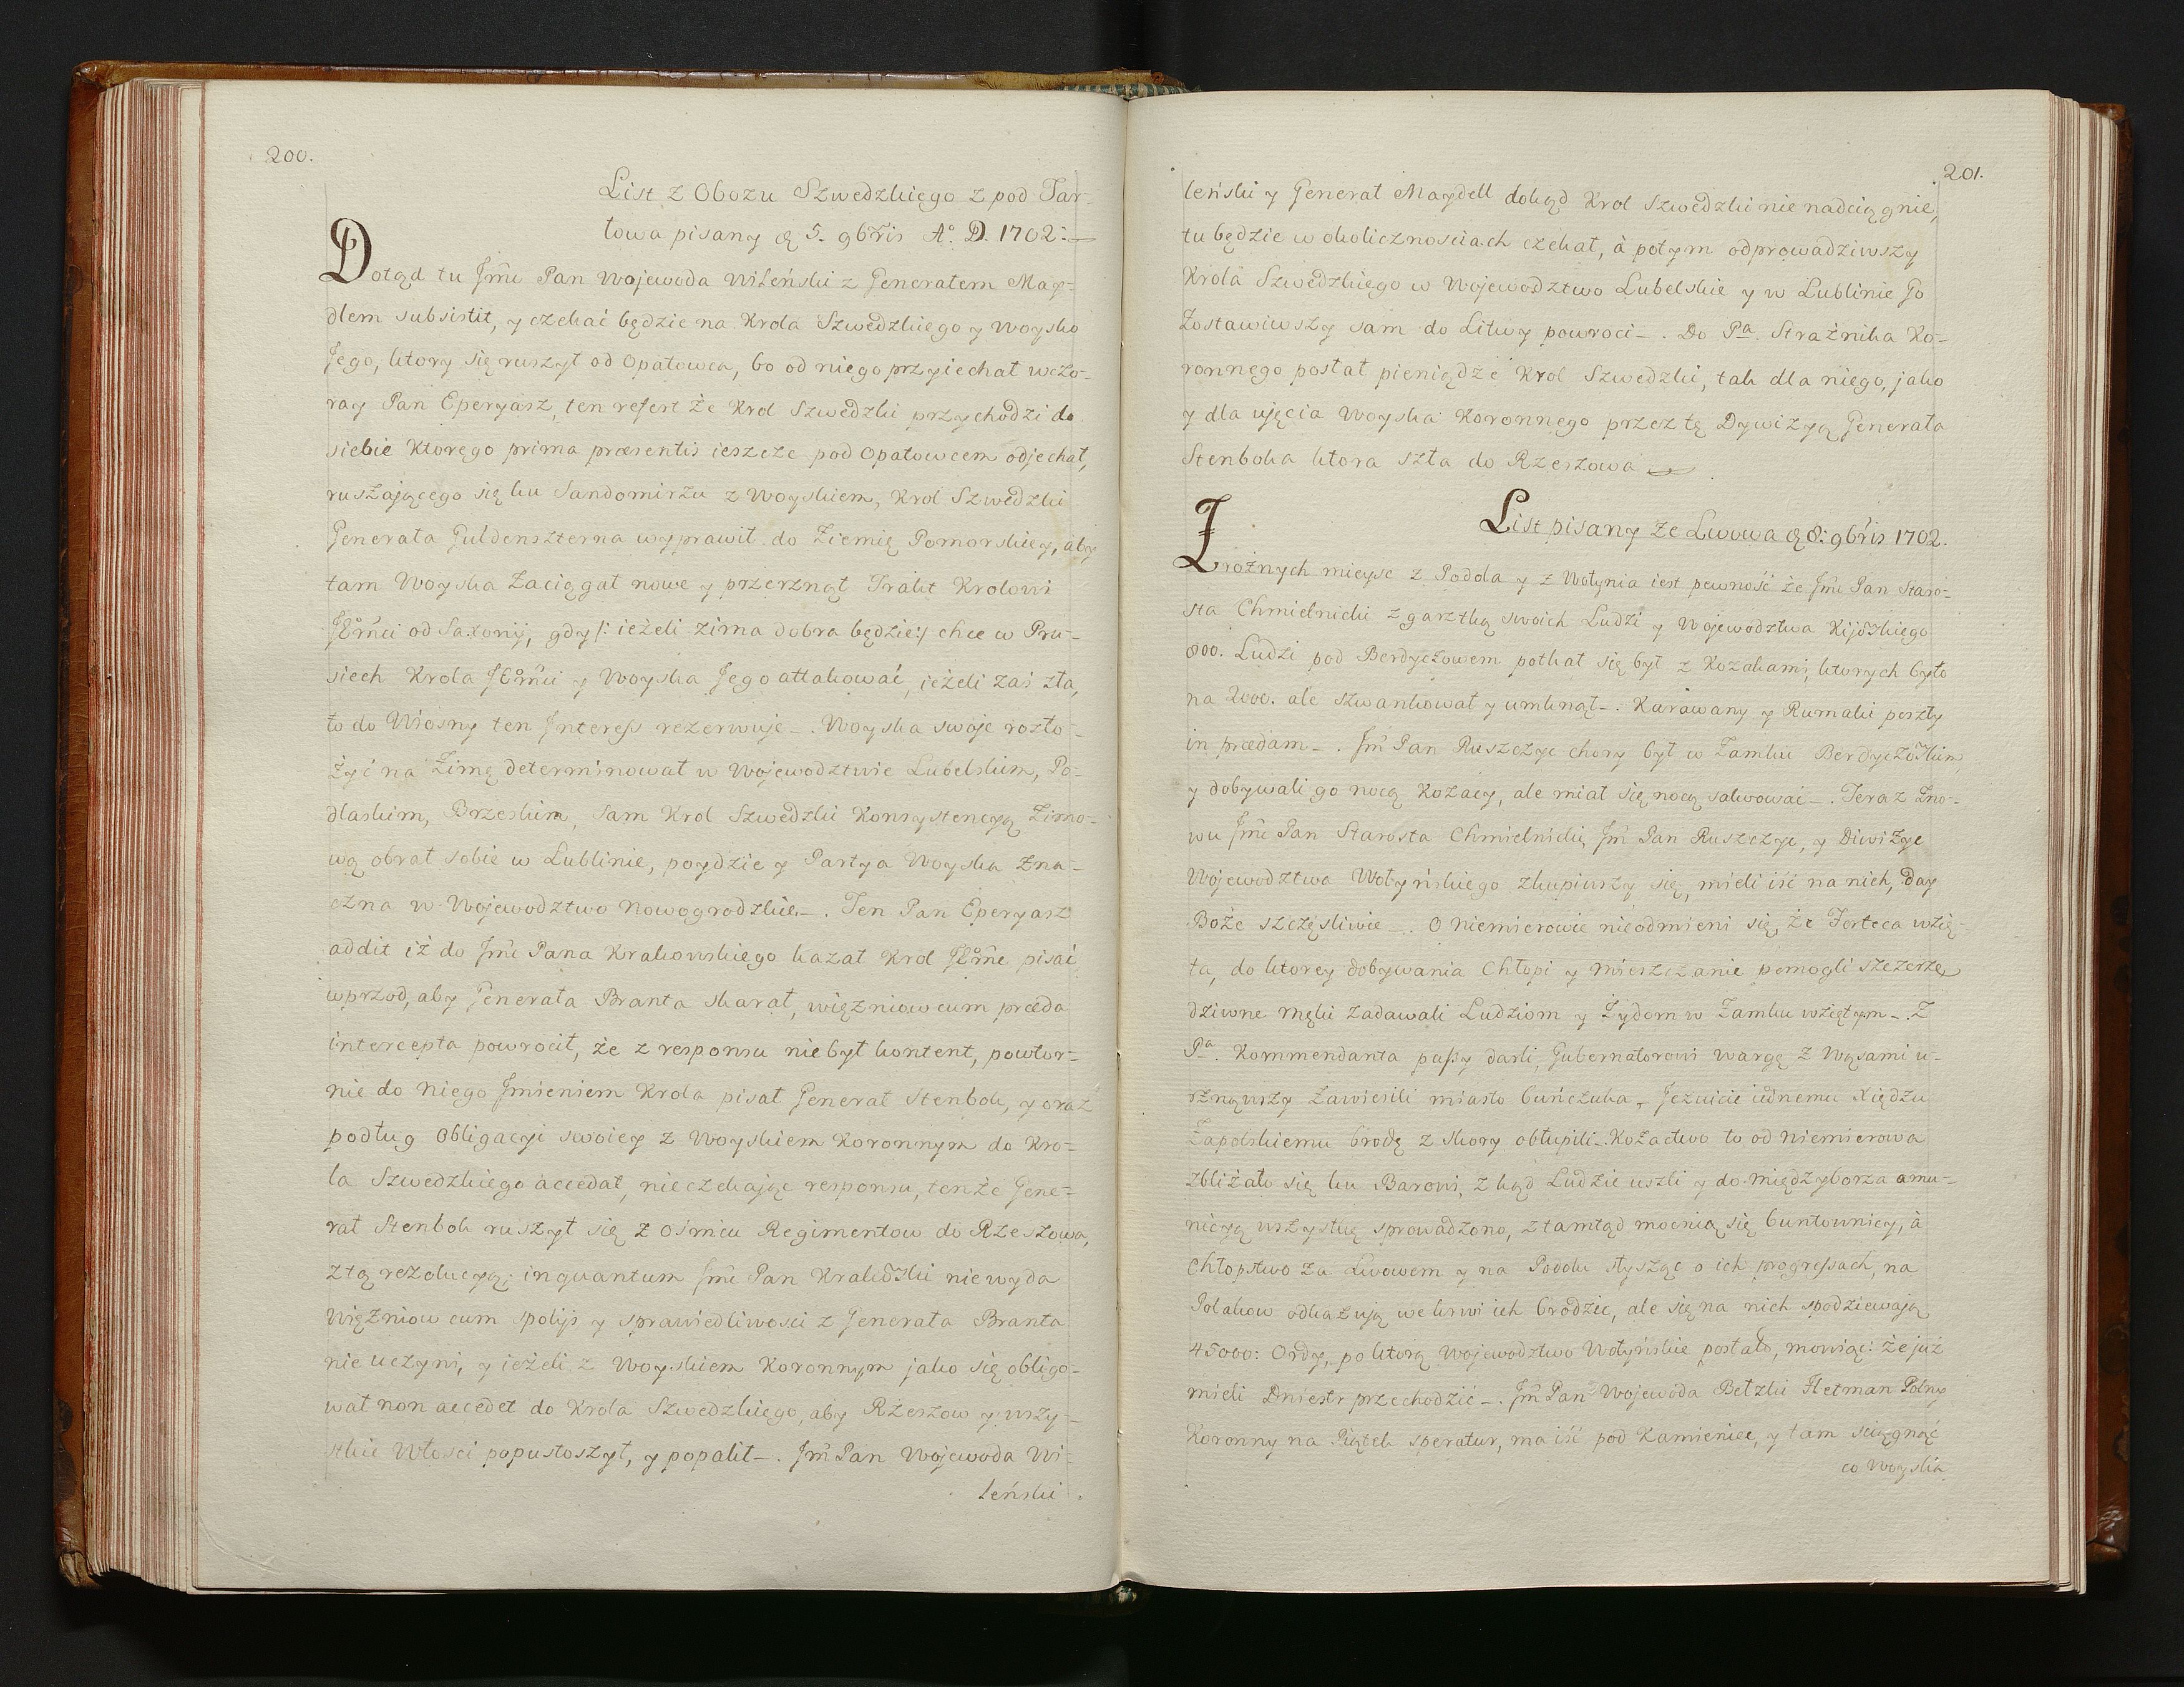 200.
List z Obozu Szwedzkiego z pod Tar-
łowa pisany d 5. 9bris A° D. 1702:
Dotąd tu Jmć Pan Wojewoda Wileński z Generałem May-
dlem subsistit, y czekać będzie na Krola Szwedzkiego y Woysko
Jego, ktory się ruszył od Opatowca, bo od niego przyiechał wczo-
ray Pan Eperyasz, ten refert że Krol Szwedzki przychodzi do
siebie Ktorego prima præsentis ieszcze pod Opatowcem odjechał,
ruszającego się ku Sandomirzu z Woyskiem, Krol Szwedzki
Generała Guldenszterna wyprawił do Ziemię Pomorskiey, aby
tam Woyska Zaciągał nowe y przerznął Trakt Krolowi
JEmci od Saxonij, gdy /: ieżeli zima dobra będzie:/ chce w Pru-
siech Krola JEmci y Woyska Jego attakować, ieżeli zaś zła,
to do Wiosny ten Interess rezerwuje_. Woyska swoje rozło-
żyć na Zimę determinował w Wojewodztwie Lubelskim, Po-
dlaskim, Brzeskim, Sam Krol Szwedzki Konsystencyą Zimo-
wą obrał sobie w Lublinie, poydzie y Partya Woyska Zna-
czna w Wojewodztwo Nowogrodzkie_. Ten Pan Eperyasz
addit iż do Jmć Pana Krakowskiego kazał Krol JEmc pisać
wprzod, aby Generała Branta skarał, więzniow cum præda
intercepta powrocił, że z responsu nie był kontent, powtor-
nie do niego Jmieniem Krola pisał Generał Stenbok, y oraz
podług Obligacyi swoiey z Woyskiem Koronnym do Kro-
la Szwedzkiego accedat, nie czekając responsu, tenże Gene-
rał Stenbok ruszył się z ośmiu Regimentow do Rzeszowa,
z tą rezolucyą; inquantum Jmć Pan Krakowski nie wyda
Więzniow cum spolijs y sprawiedliwości z Generała Branta
nie uczyni, y ieżeli z Woyskiem Koronnym jako się obligo-
wał non accedet do Krola Szwedzkiego, aby Rzeszow y wszy-
stkie Włości popustoszył, y popalił_. Jmć Pan Wojewoda Wi-
leński
201.
leński y Generał Maydell dokąd Krol Szwedzki nie nadciągnie,
tu będzie w okolicznościach czekał, à potym odprowadziwszy
Krola Szwedzkiego w Wojewodztwo Lubelskie y w Lublinie Go
Zostawiwszy sam do Litwy powroci_. Do Pa. Strażnika Ko-
ronnego posłał pieniądze Krol Szwedzki, tak dla niego, jako
y dla ujęcia Woyska Koronnego przez tę Dywizyą Generała
Stenboka ktora szła do Rzeszowa
List pisany ze Lwowa d 8: 9bris 1702.
Z rożnych mieysc z Podola y z Wołynia iest pewność że Jmć Pan Staro-
sta Chmielnicki z garztką swoich Ludzi y Wojewodztwa Kijowskiego
800. Ludzi pod Berdyczowem potkał się był z Kozakami, ktorych było
na 2000. ale szwankował y umknął_. Karawany y Rumaki poszły
in prædam_. Jmć Pan Ruszczyc chory był w Zamku Berdyczowskim
y dobywali go nocą Kozacy, ale miał się nocą salwować_. Teraz Zno-
wu Jmć Pan Starosta Chmielnicki, Jmć Pan Ruszczyc, y Diwizye
Wojewodztwa Wołyńskiego skupiwszy się, mieli iść na nich, day
Boże szczęsliwie_. O Niemierowie nieodmieni się, że Forteca wzię-
ta, do ktorey dobywania Chłopi y Mieszczanie pomogli szczerze,
dziwne męki zadawali Ludziom y Żydom w Zamku wziętym_. Z
Pa. Kommendanta passy darli, Gubernatorowi wargę z Wąsami u-
rznąwszy Zawiesili miasto buńczuka, Jezuicie iednemu Xiędzu
Zapolskiemu brodę z skory obłupili_. Kozactwo to od Niemierowa
zbliżało się ku Barowi, z kąd Ludzie uszli y do Międzyborza amu-
nicyą wszystkę sprowadzono, z tamtąd mocnią się buntownicy, à
Chłopstwo za Lwowem y na Podolu słysząc o ich progressach, na
Polakow odkazują we krwi ich brodzic, ale się na nich spodziewają
45000: Ordy, po ktorą Wojewodztwo Wołyńskie posłało, mowiąc: że już
mieli Dniestr przechodzić_. Jmć Pan Wojewoda Bełzki Hetman Polny
Koronny na Piątek speratur, ma iść pod Kamieniec, y tam sciągnąć
co Woyska